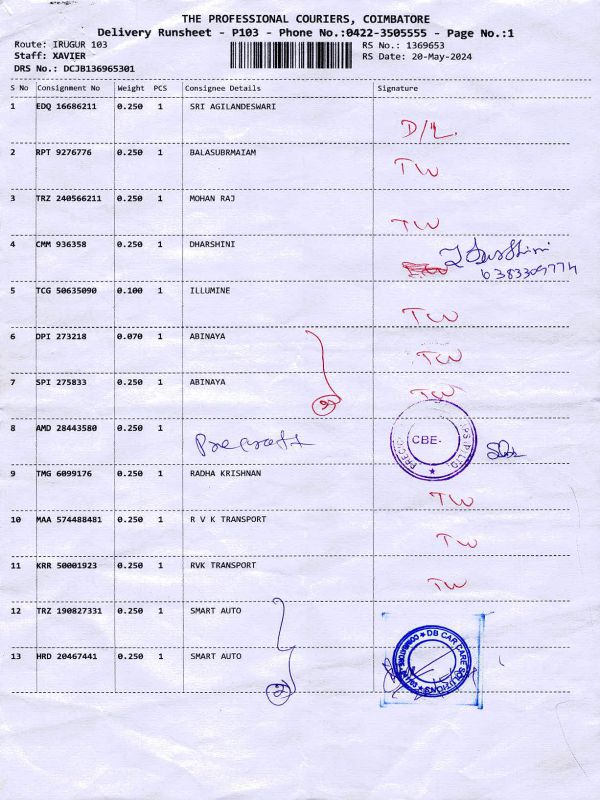 THE PROFESSIONAL COURIERS, COIMBATORE
Delivery Runsheet - P103 - Phone No.:0422-3505555 - Page No.:1
Route: IRUGUR 103 RS No.: 1369653
Staff: XAVIER RS Date: 20-May-2024
DRS No.: DCJB136965301
S No Consignment No Weight PCS Consignee Details Signature
1 EDQ 16686211 0.250 1 SRI AGILANDESWARI
D/L.
2 RPT 9276776 0.250 1 BALASUBRMAIAM
TW
3 TRZ 240566211 0.250 1 MOHAN RAJ
TW
4 CMM 936358 0.250 1 DHARSHINI
5 TCG 50635090 0.100 1 ILLUMINE
TW
6 DPI 273218 0.070 1 ABINAYA
TW
7 SPI 275833 0.250 1 ABINAYA
TW
2
8 AMD 28443580 0.250 1
CBE.
9 TMG 6099176 0.250 1 RADHA KRISHNAN
TW
10 MAA 574488481 0.250 1 R V K TRANSPORT
TW
11 KRR 50001923 0.250 1 RVK TRANSPORT
TW
12 TRZ 190827331 0.250 1 SMART AUTO
13 HRD 20467441 0.250 1 SMART AUTO
DB CAR CARE SOLUTIONS
2